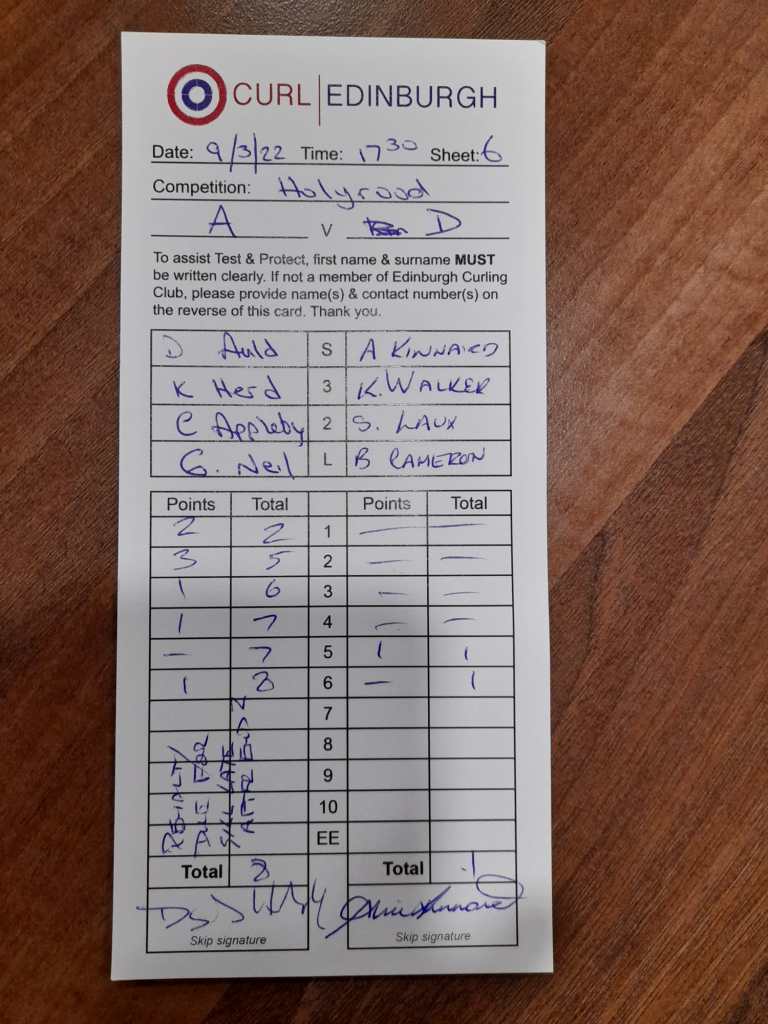 CURL EDINBURGH
Date: 9/3/22 Time: 17 30 Sheet: 6
Competition: Holyrood
A V D
To assist Test & Protect, first name & surname MUST
be written clearly. If not a member of Edinburgh Curling
Club, please provide name(s) & contact number(s) on
the reverse of this card. Thank you.
D Auld S A KINNAIRD
K Herd 3 K. WALKER
C Appleby 2 S. LAUX
G. Neil L B CAMERON
Points Total Points Total
2 2 1 — —
3 5 2 — —
1 6 3 — —
1 7 4 — —
— 7 5 1 1
1 8 6 — 1
7
8
9
10
EE
PENALTY
FOR
LATE
AFTER END 2
Total 8 Total 1
Skip signature Skip signature